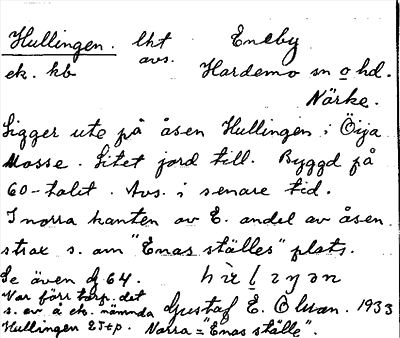 Hullingen. lht Eneby
ek. kb avs. Hardemo sn o hd.
Närke.
Ligger ute på åsen Hullingen i Öija
Mosse. Litet jord till. Byggd på
60-talet. Avs. i senare tid.
I norra kanten av E. andel av åsen
strax s. om "Enas ställes" plats.
Se även dj 64.
Var förr torp. det
s. av å ek. nämnda Gustaf E. Olsson. 1933
Hullingen 2 T+p. Norra = "Enas ställe".